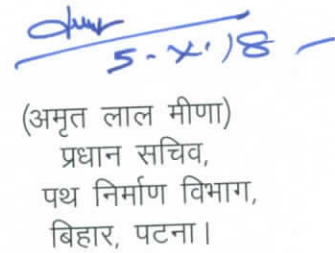 5-X-18
(अमृत लाल मीणा)
प्रधान सचिव,
पथ निर्माण विभाग,
बिहार, पटना।